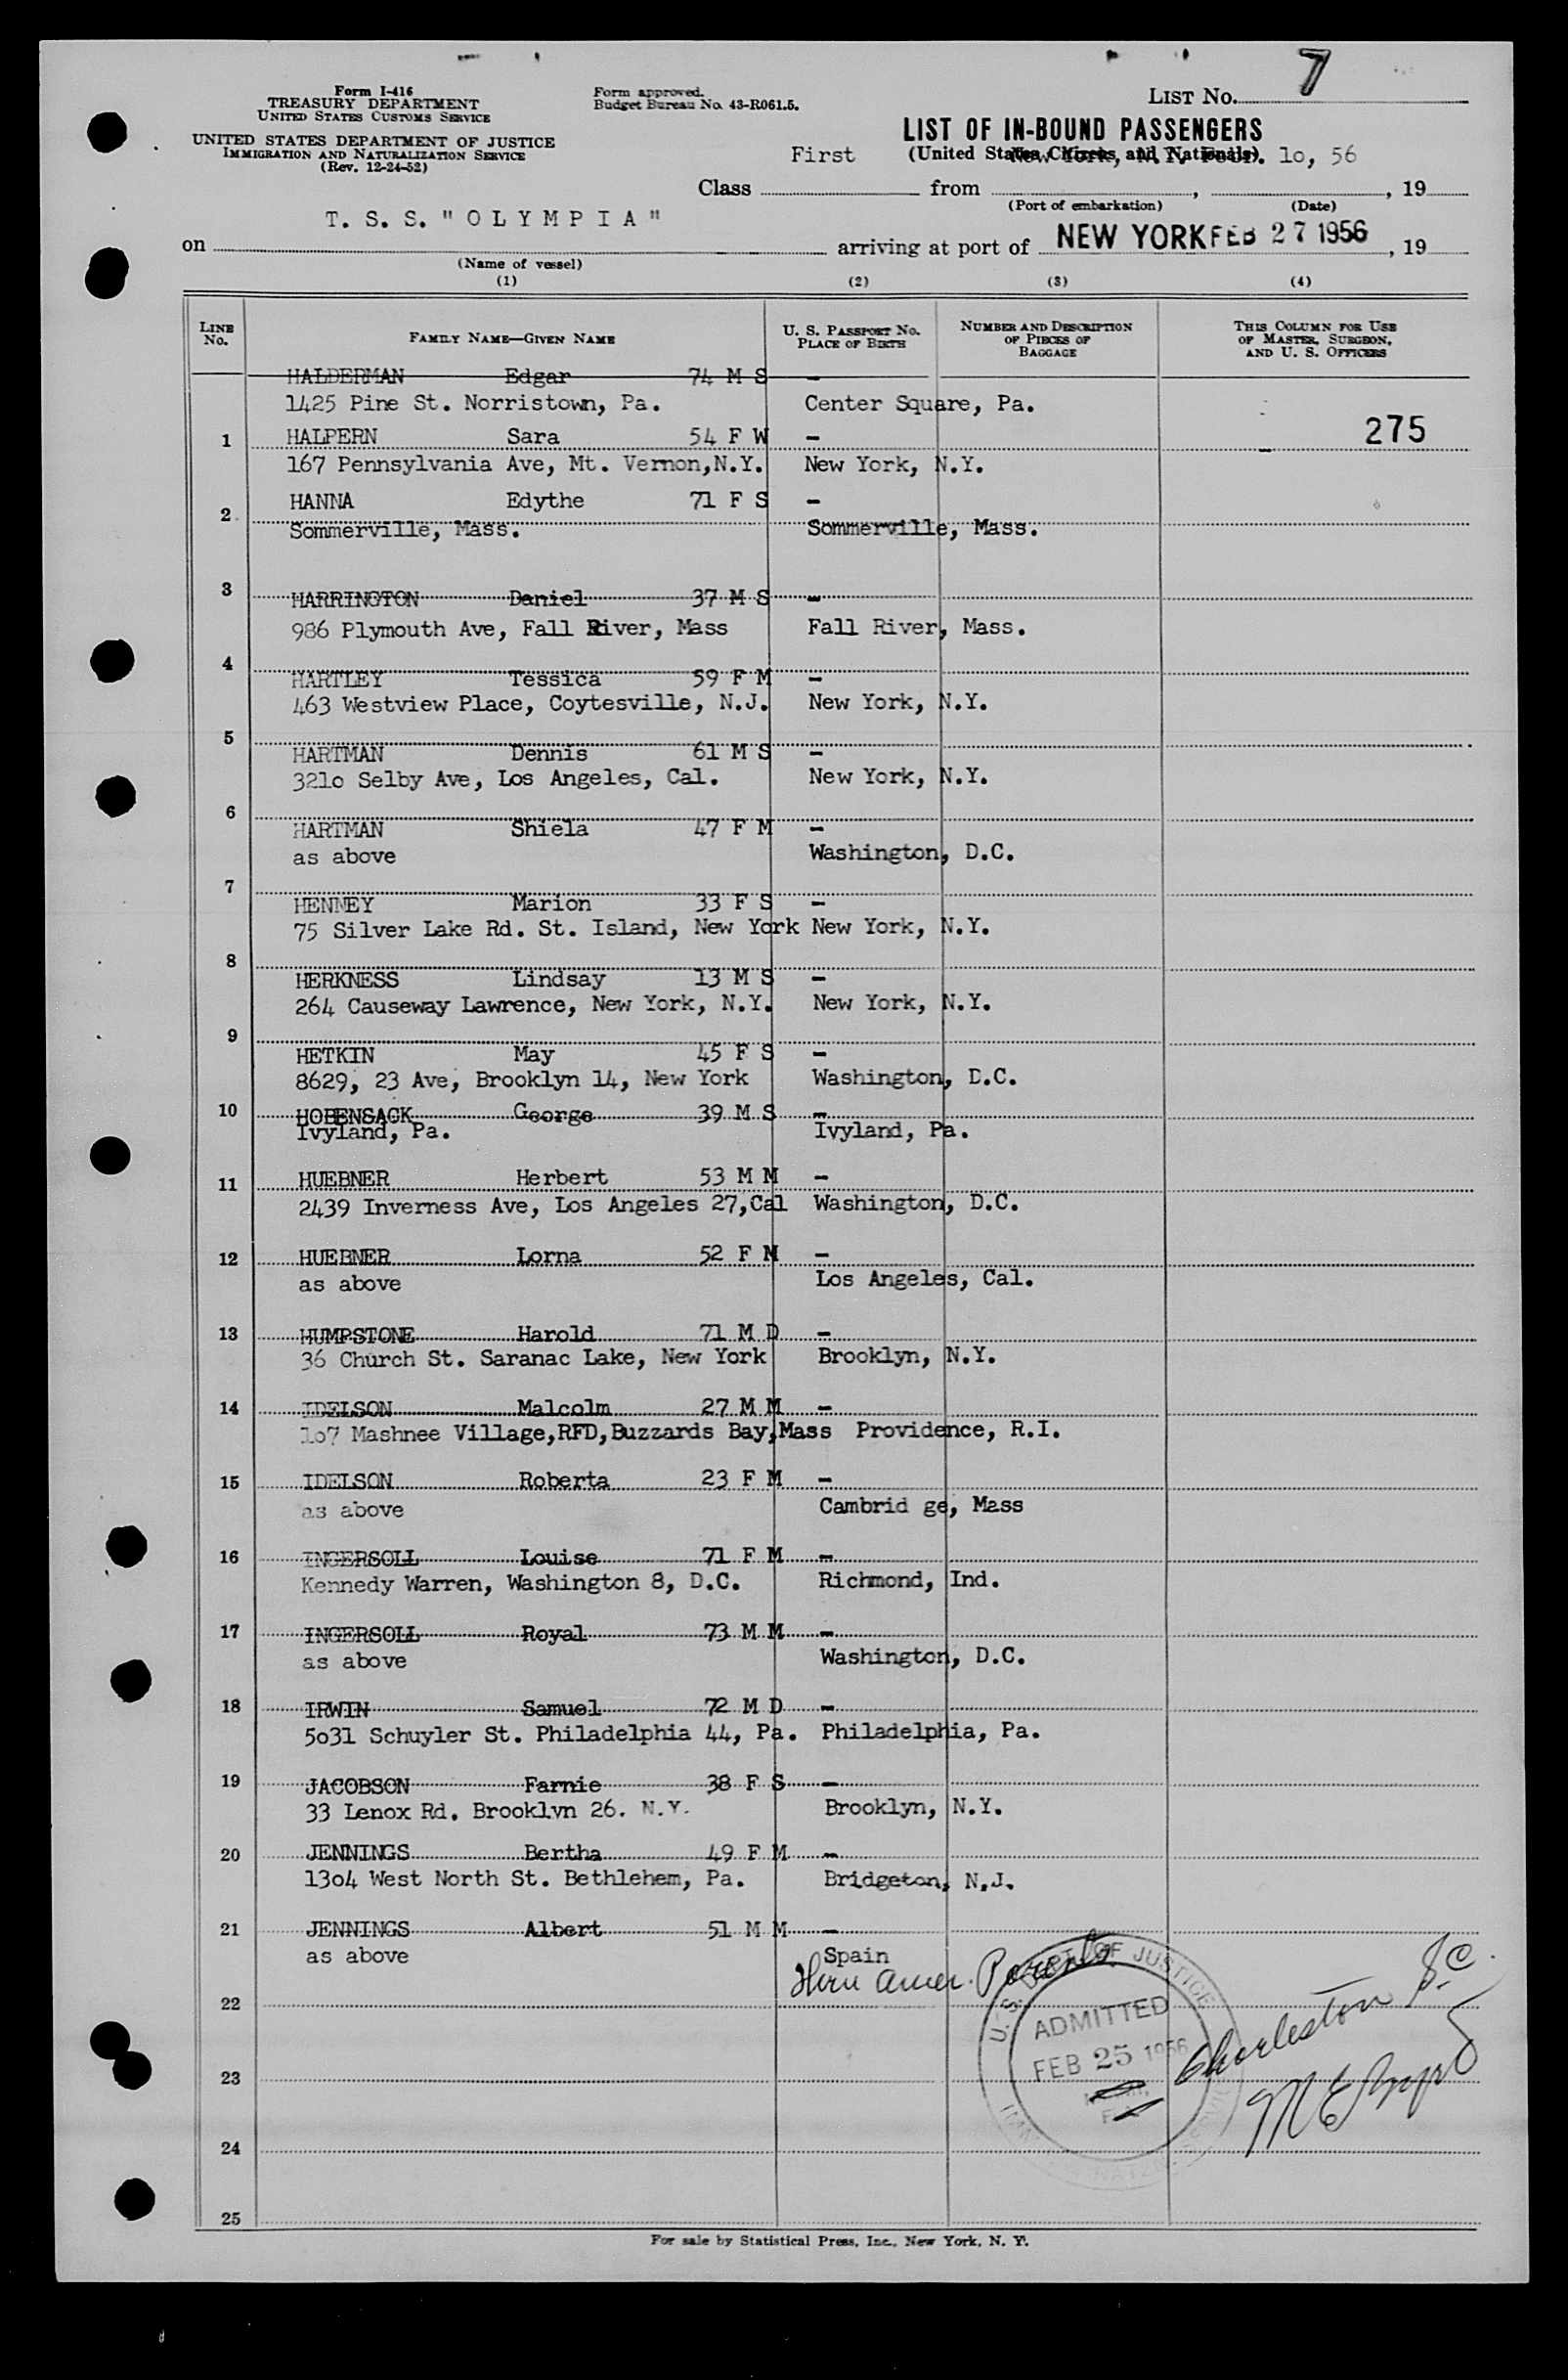 7
Form I-416
TREASURY DEPARTMENT
UNITED STATES CUSTOMS SERVICE
UNITED STATES DEPARTMENT OF JUSTICE
IMMIGRATION AND NATURALIZATION SERVICE
(Rev. 12-24-52)
Form approved.
Budget Bureau No. 43-R061.5.
LIST No.
LIST OF IN-BOUND PASSENGERS
(United States Citizens and Nationals)
First New York, N.Y. 10, 56
Class from , , 19
(Port of embarkation) (Date)
T. S. S. "OLYMPIA"
on arriving at port of NEW YORK FEB 27 1956, 19
(Name of vessel)
(1) (2) (3) (4)
LINE No. FAMILY NAME—GIVEN NAME U. S. PASSPORT No. PLACE OF BIRTH NUMBER AND DESCRIPTION OF PIECES OF BAGGAGE THIS COLUMN FOR USE OF MASTER, SURGEON, AND U. S. OFFICERS
HALDERMAN Edgar 74 M S -
1425 Pine St. Norristown, Pa. Center Square, Pa.
1 HALPERN Sara 54 F W - 275
167 Pennsylvania Ave, Mt. Vernon,N.Y. New York, N.Y.
2 HANNA Edythe 71 F S -
Sommerville, Mass. Sommerville, Mass.
3 HARRINGTON Daniel 37 M S -
986 Plymouth Ave, Fall River, Mass Fall River, Mass.
4 HARTLEY Tessica 59 F M -
463 Westview Place, Coytesville, N.J. New York, N.Y.
5 HARTMAN Dennis 61 M S -
321o Selby Ave, Los Angeles, Cal. New York, N.Y.
6 HARTMAN Shiela 47 F M -
as above Washington, D.C.
7 HENNEY Marion 33 F S -
75 Silver Lake Rd. St. Island, New York New York, N.Y.
8 HERKNESS Lindsay 13 M S -
264 Causeway Lawrence, New York, N.Y. New York, N.Y.
9 HETKIN May 45 F S -
8629, 23 Ave, Brooklyn 14, New York Washington, D.C.
10 HOBENSACK George 39 M S -
Ivyland, Pa. Ivyland, Pa.
11 HUEBNER Herbert 53 M M -
2439 Inverness Ave, Los Angeles 27,Cal Washington, D.C.
12 HUEBNER Lorna 52 F M -
as above Los Angeles, Cal.
13 HUMPSTONE Harold 71 M D -
36 Church St. Saranac Lake, New York Brooklyn, N.Y.
14 IDELSON Malcolm 27 M M -
1o7 Mashnee Village,RFD,Buzzards Bay,Mass Providence, R.I.
15 IDELSON Roberta 23 F M -
as above Cambrid ge, Mass
16 INGERSOLL Louise 71 F M -
Kennedy Warren, Washington 8, D.C. Richmond, Ind.
17 INGERSOLL Royal 73 M M -
as above Washington, D.C.
18 IRWIN Samuel 72 M D -
5o31 Schuyler St. Philadelphia 44, Pa. Philadelphia, Pa.
19 JACOBSON Farnie 38 F S -
33 Lenox Rd. Brooklyn 26. N.Y. Brooklyn, N.Y.
20 JENNINGS Bertha 49 F M -
13o4 West North St. Bethlehem, Pa. Bridgeton, N.J.
21 JENNINGS Albert 51 M M -
as above Spain
Amer. Parents
22
23
24
25
U.S. DEPT. OF JUSTICE
ADMITTED
FEB 25 1956
Charleston S.C.
For sale by Statistical Press, Inc., New York, N. Y.